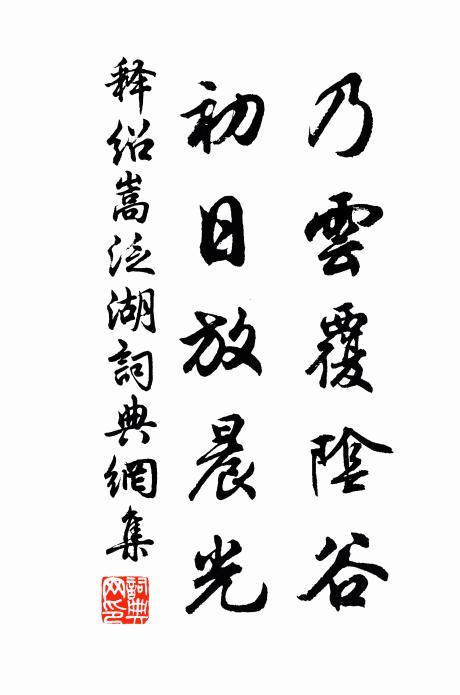 乃雲覆陰谷
初日放晨光
释紹嵩泛湖詞典網集
詞典網印